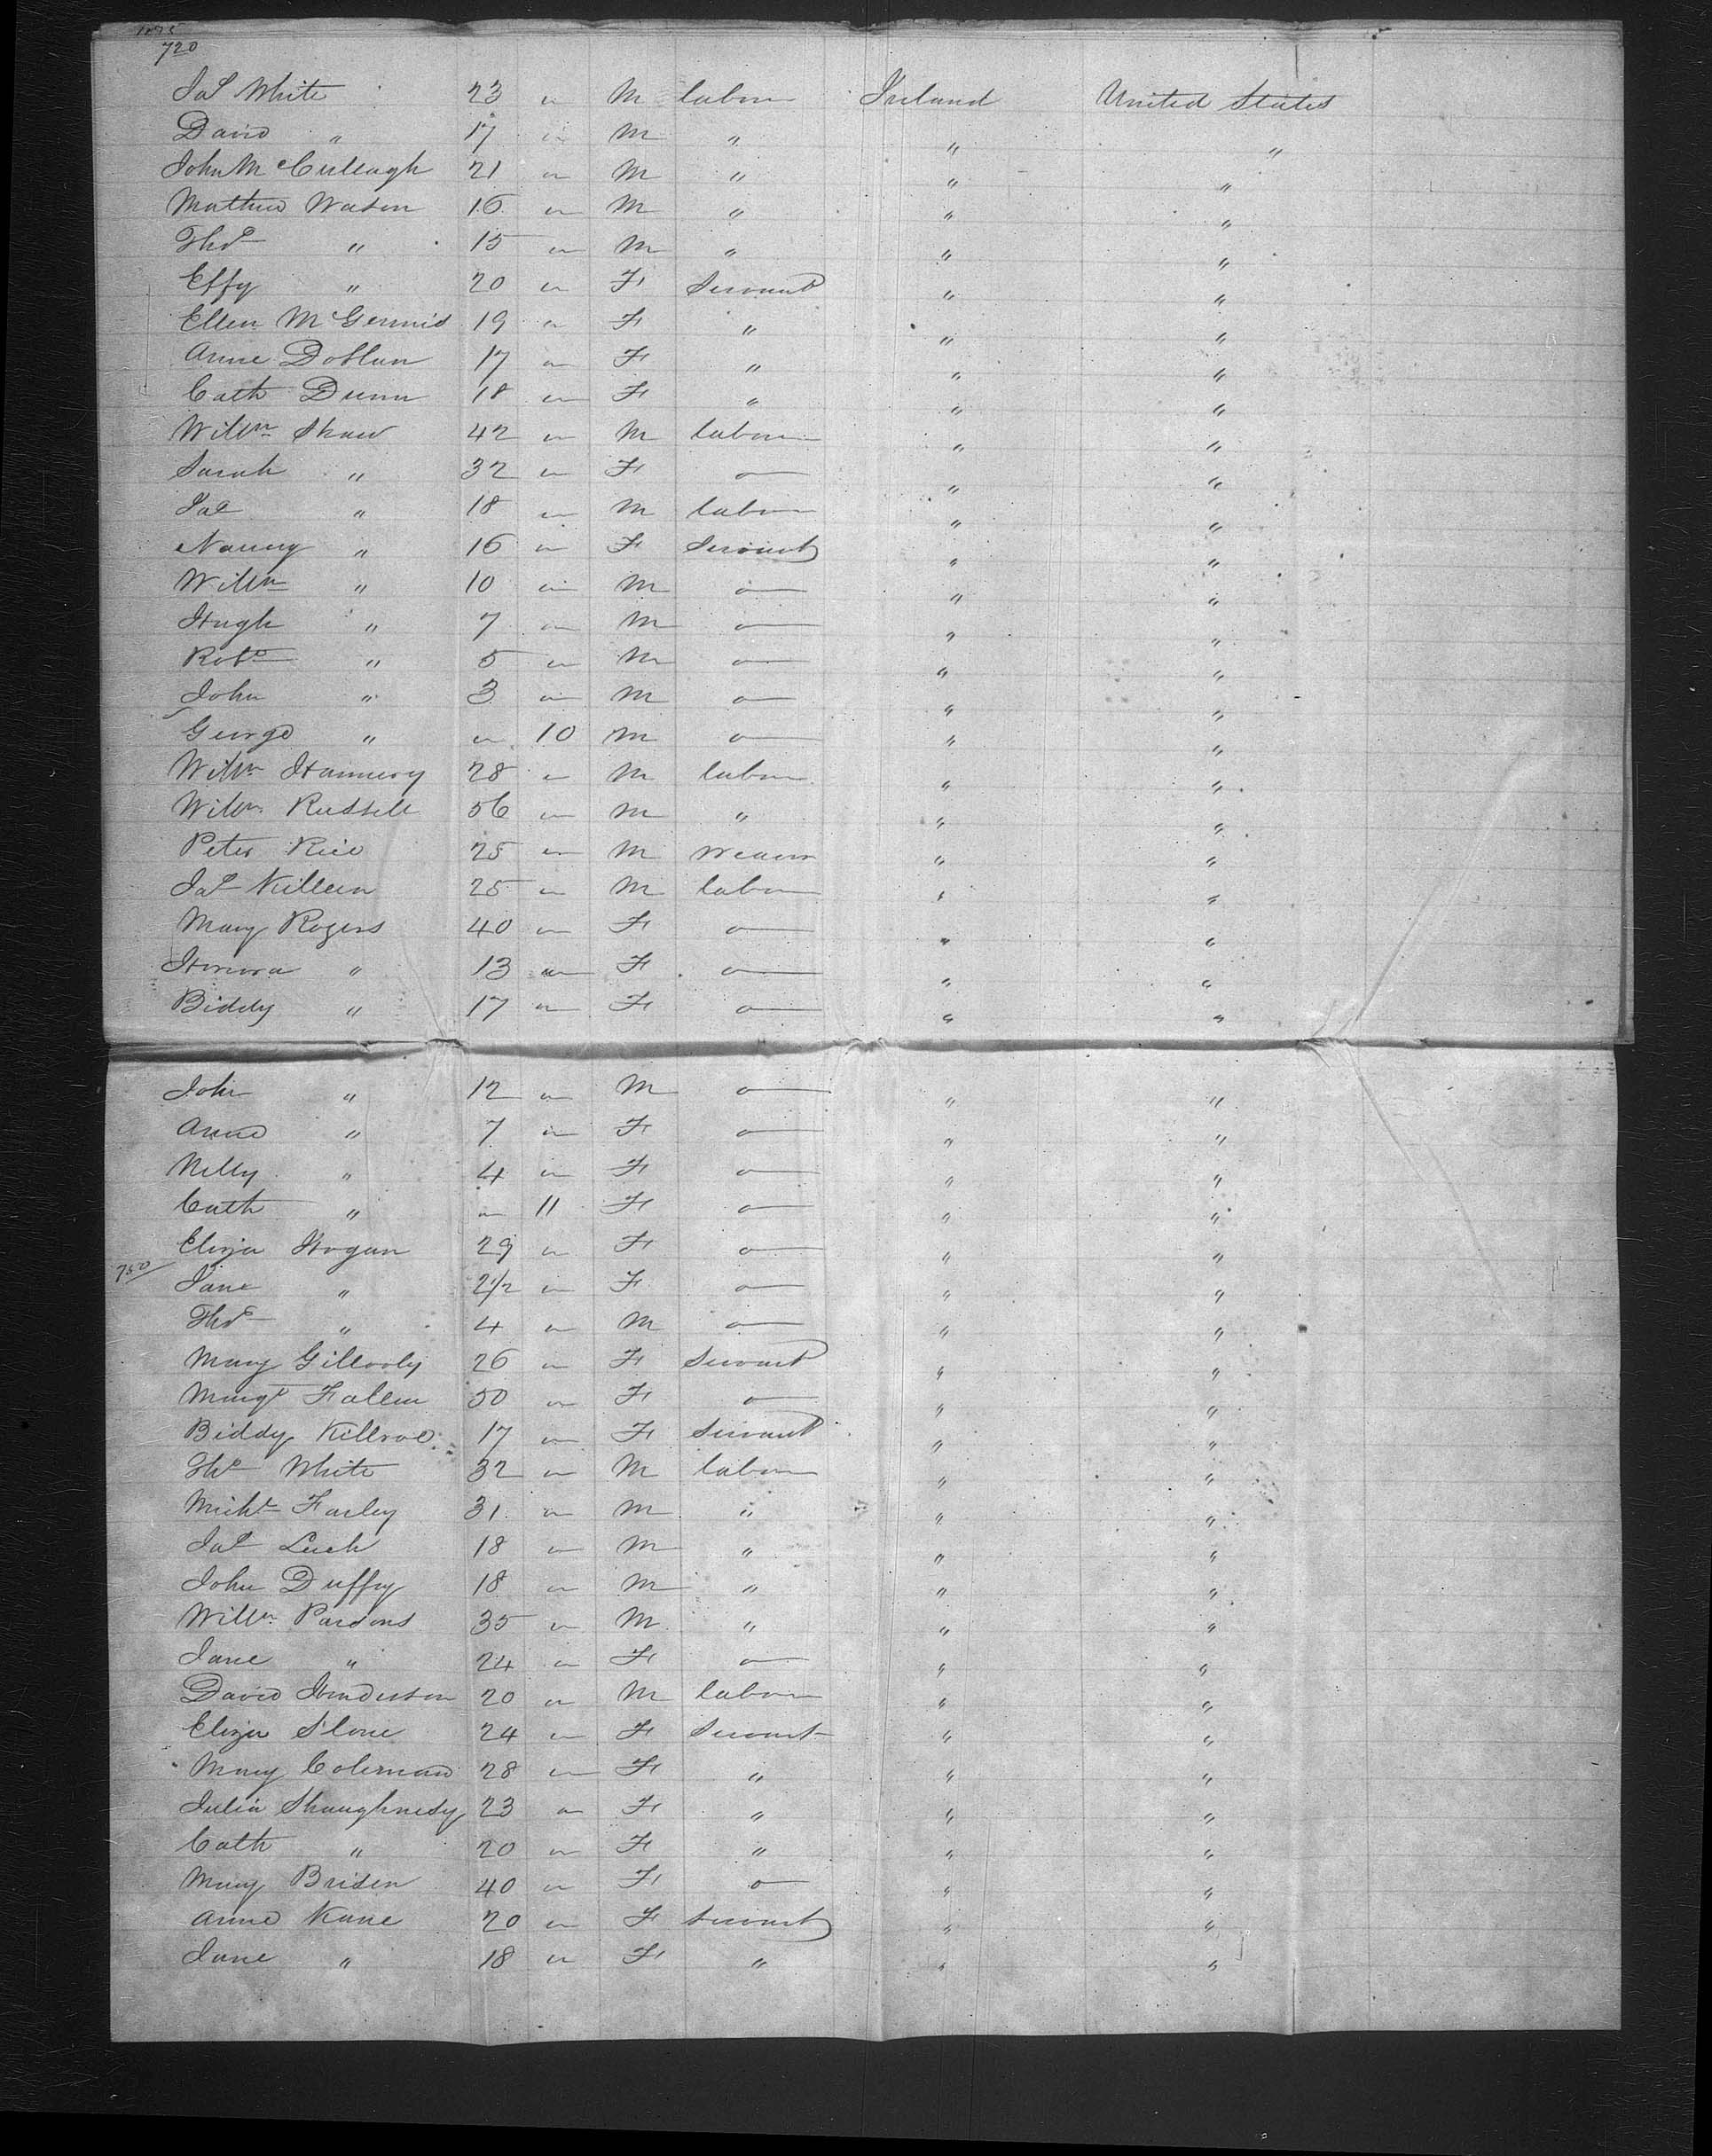 720
Jas White 23 " M labor Ireland United States
David " 17 " M " " "
John McCullagh 21 " M " " "
Mathew Watson 16 " M " " "
Thos " 15 " M " " "
Effy " 20 " F Servant " "
Ellen McGennis 19 " F " " "
Anne Doblan 17 " F " " "
Cath Dunn 18 " F " " "
Willm Shaw 42 " M labor " "
Sarah " 32 " F — " "
Jas " 18 " M labor " "
Nancy " 16 " F Servant " "
Willm " 10 " M — " "
Hugh " 7 " M — " "
Robt " 5 " M — " "
John " 3 " M — " "
George " " 10 M — " "
Willm 28 " M labor " "
Willm Russell 56 " M " " "
Peter Rice 25 " M weaver " "
Jas Killeen 25 " M labor " "
Mary Rogers 40 " F — " "
Honora " 13 " F — " "
Biddy " 17 " F — " "
John " 12 " M — " "
Anne " 7 " F — " "
Nelly " 4 " F — " "
Cath " " 11 F — " "
Eliza Hogan 29 " F — " "
750 Jane " 2½ " F — " "
Thos " 4 " M — " "
Mary Gillooly 26 " F Servant " "
Margt Fallen 50 " F — " "
Biddy Killroe 17 " F Servant " "
Ths White 32 " M labor " "
Michl Farley 31 " M " " "
Jas 18 " M " " "
John Duffy 18 " M " " "
Willm Parsons 35 " M " " "
Jane " 24 " F — " "
David Henderson 20 " M labor " "
Eliza Slone 24 " F Servant " "
Mary Coleman 28 " F " " "
Julia Shaughnesy 23 " F " " "
Cath " 20 " F " " "
Mary Brisen 40 " F — " "
Anne Kane 20 " F Servant " "
Jane " 18 " F " " "